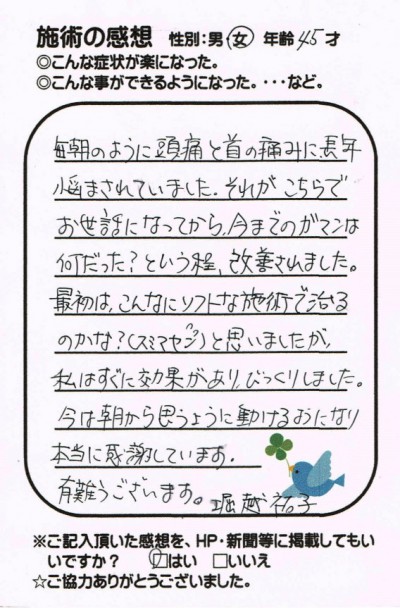 施術の感想 性別:男・女 年齢 45才
◎こんな症状が楽になった。
◎こんな事ができるようになった。・・・など。
毎朝のように頭痛と首の痛みに長年
悩まされていました。それがこちらで
お世話になってから、今までのガマンは
何だった?という程、改善されました。
最初は、こんなにソフトな施術で治る
のかな?(スミマセン)と思いましたが、
私はすぐに効果があり、びっくりしました。
今は朝から思うように動けるようになり
本当に感謝しています。
有難うございます。 堀越祐子
※ご記入頂いた感想を、HP・新聞等に掲載してもい
いですか? ☑はい □いいえ
☆ご協力ありがとうございました。